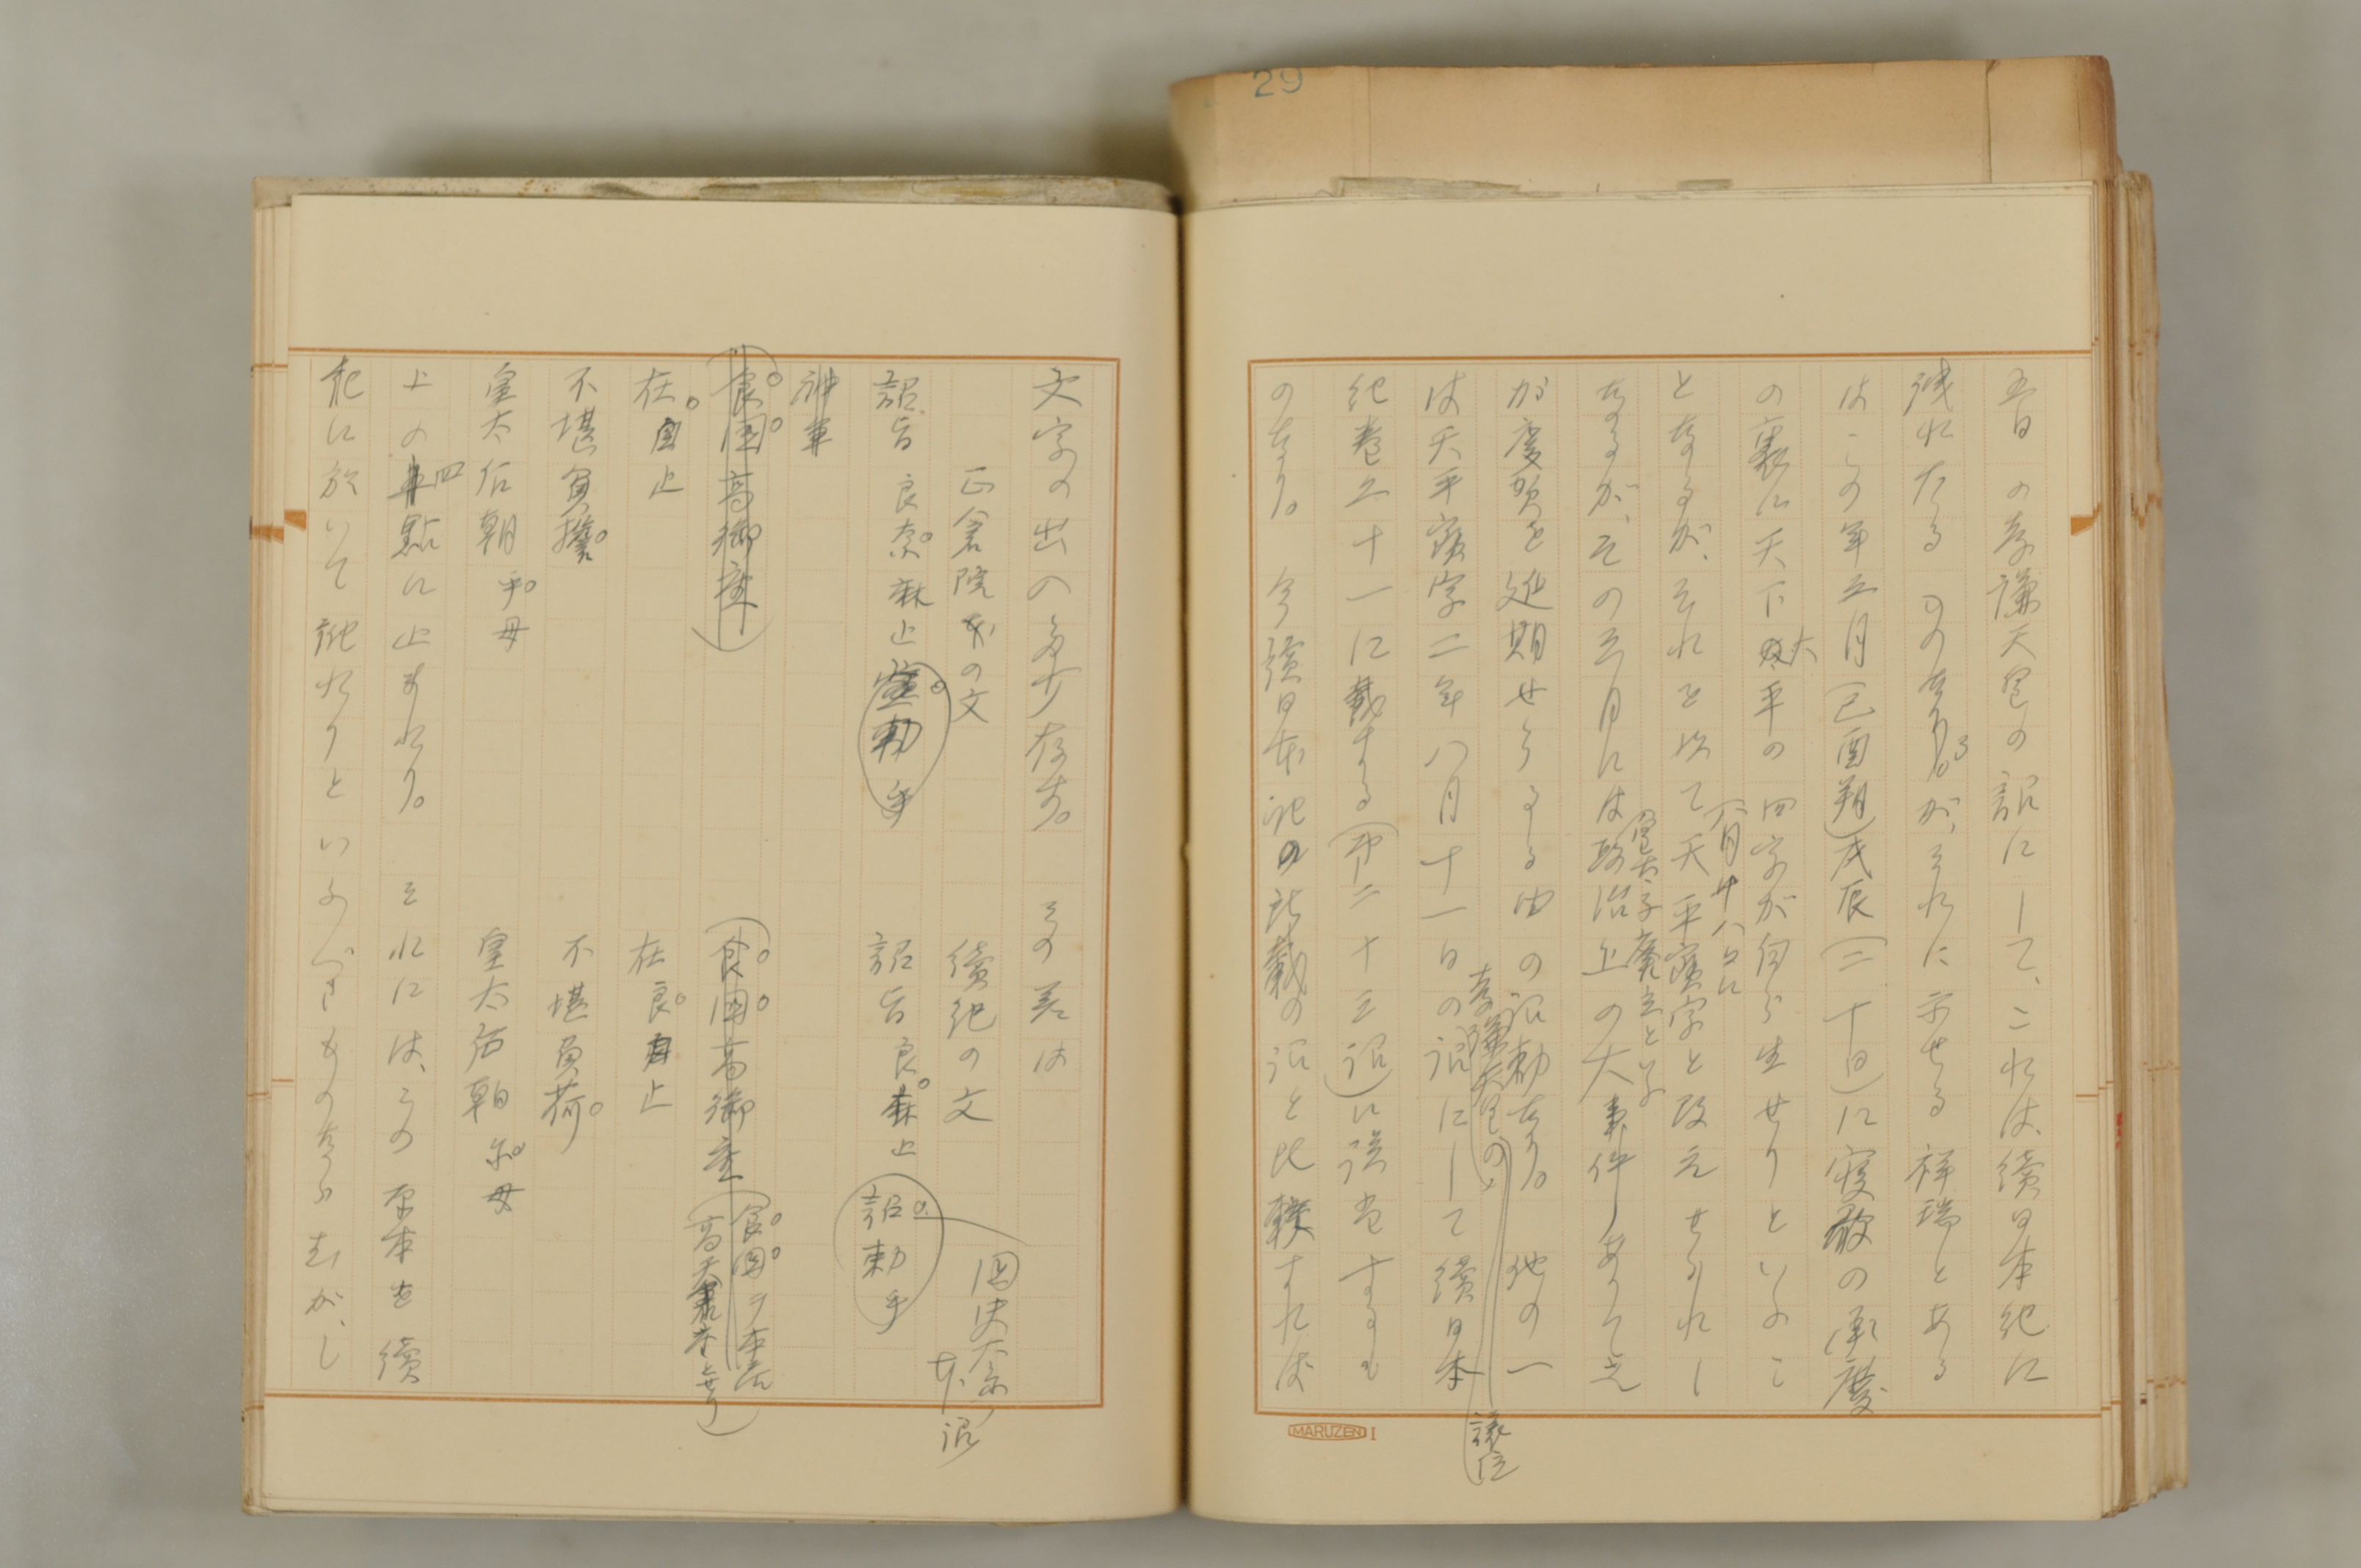 29
五日の孝謙天皇の詔にして、これは、續日本紀に
洩れたるのなるが、それに示せる祥瑞とある
はこの年三月(己酉朔)戊辰(二十日)に寝殿の承塵
の裏に天下大平の四字が自ら生せりといふこ
となるが、それを以て八月十八日に天平寶字と改元せられし
なるが、その三月には皇太子廃立といふ政治上の大事件ありて之
が慶賀を延期せらるる由の詔勅なり。他の一
は天平寶字二年八月十一日の孝謙天皇の譲位詔にして續日本
紀巻二十一に載する(第二十三詔)に該当するも
のなり。今續日本紀の所載の詔と比較すれば
MARUZEN I
文字の出入多少存す。その差は
正倉院本の文 續紀の文
詔旨良奈麻止宣勅乎 詔旨良麻止詔勅乎
國史大系本詔
神事
(食國高御座) (食國高御座(食國ヲ本ニ
在 止 在良 止
不堪負擔 不堪負荷
皇太后朝乎母 皇太后朝尓母
上の四點に止まれり。それには、この原本を續
紀に於いて訛れりといふべきものならむが、し